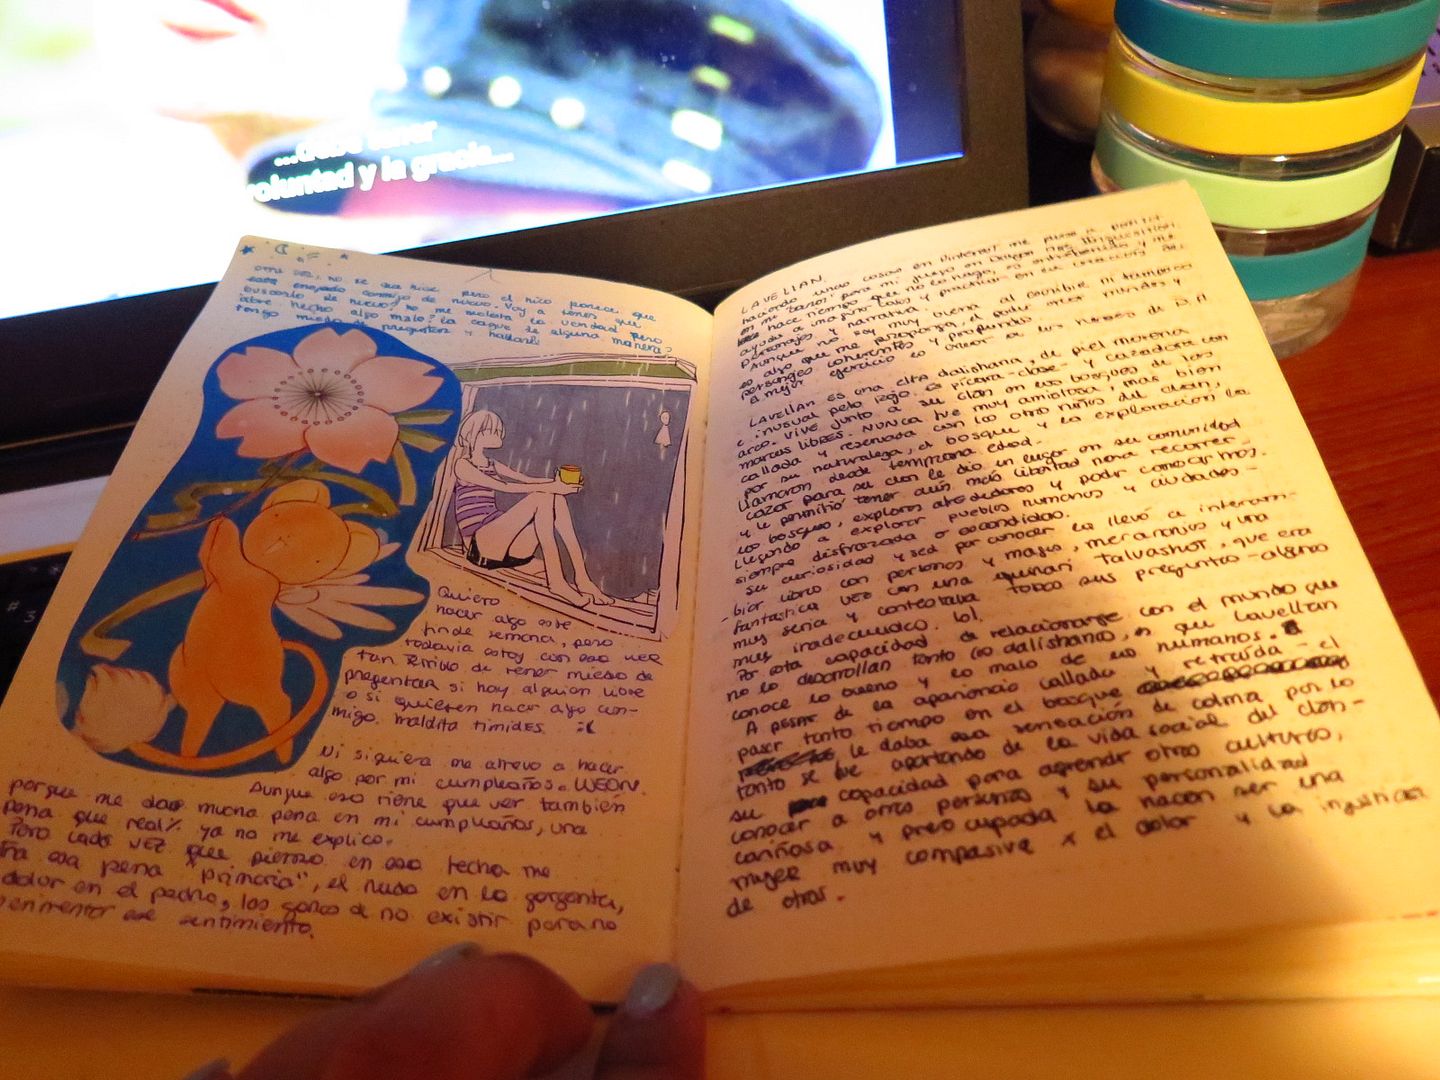 ...debe tener
voluntad y la gracia...
otra vez, no se que hice pero el nico parece que
está enojado conmigo de nuevo. Voy a tener que
buscarlo de nuevo, no me molesta la verdad pero
habré hecho algo malo? la cague de alguna manera?
tengo miedo de preguntar y hablarle
Quiero
hacer algo este
finde semana, pero
todavía estoy con esa wea
tan de tener miedo de
preguntar si hay alguien libre
o si quieren hacer algo con-
migo. maldita timides :(
Ni siquiera me atrevo a hacer
algo por mi cumpleaños. WEON.
Aunque eso tiene que ver también
porque me da mucha pena en mi cumpleaños, una
pena que real% ya no me explico.
Pero cada vez que pienso en esa fecha me
esa pena "primaria", el nudo en la garganta,
dolor en el pecho, las ganas de no existir para no
ese sentimiento.
LAVELLAN.
haciendo unas cosas en Pinterest me puse a
en mi para mi juego en Dragon Age Inquisition.
hace tiempo que no lo hago, es entretenido y me
ayuda a imaginar cosas y practicar en la creación de
personajes y narrativa.
Aunque no soy muy buena al escribir ni tampoco
es algo que me proponga, el poder crear mundos y
personajes coherentes y profundos.
el mejor ejercicio es crear a los héroes de D.A
Lavellan es una elfa dalishana, de piel morena
e inusual pelo rojo. Es pícara -clase- y cazadora con
arco. Vive junto a su clan en los bosques de las
marcas libres. Nunca fue muy amistosa, mas bien
callada y reservada con los otro niños del clan,
por su naturaleza, el bosque y la exploración la
llamaron desde temprana edad.
Cazar para su clan le dio un lugar en su comunidad
y le permitió tener aún más libertad para recorrer
los bosques, explorar alrededores y poder conocer más.
llegando a explorar pueblos humanos y ciudades -
siempre disfrazada o escondida.
su curiosidad y sed por conocer la llevó a intercam-
biar libros con personas y magos, mercenarios y una
fantastica vez con una qunari Talvashot, que era
muy seria y contestaba todas sus preguntas - alguna
muy inadecuada. lol.
Por esta capacidad de relacionarse con el mundo que
no lo desarrollan tanto los dalishanos, es que Lavellan
conoce lo bueno y lo malo de los humanos.
A pesar de la apariencia callada y retraída - el
pasar tanto tiempo en el bosque
le daba esa sensación de calma por lo
tanto se fue apartando de la vida social del clan -
su capacidad para aprender otras culturas,
conocer a otras personas y su personalidad
cariñosa y preocupada la hacen ser una
mujer muy compasiva x el dolor y la injusticia
de otros.